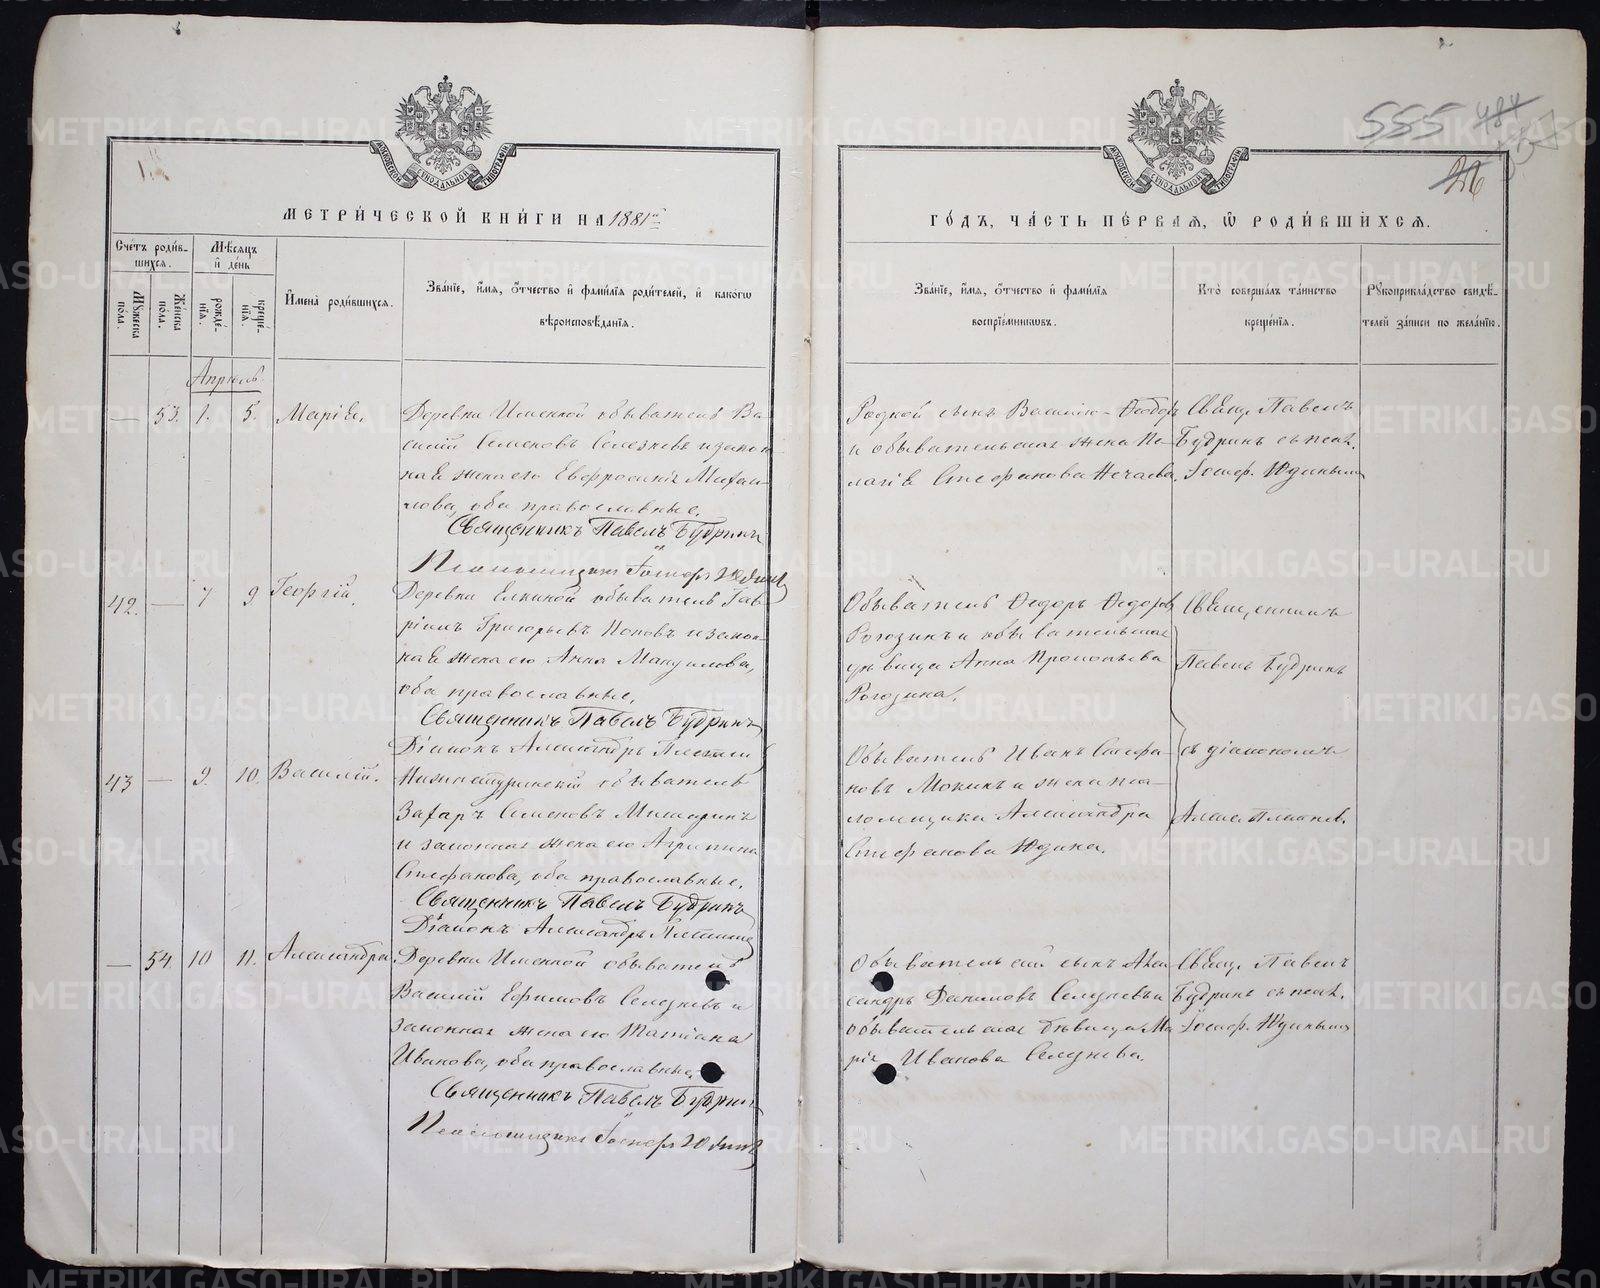 555 484
26
МОСКОВСКОЙ СѴНОДАЛЬНОЙ ТИПОГРАФІИ
МОСКОВСКОЙ СѴНОДАЛЬНОЙ ТИПОГРАФІИ
МЕТРИ́ЧЕСКОЙ КНИ́ГИ НА 1881й
ГО́ДЪ, ЧА́СТЬ ПЕ́РВАѦ, Ѿ РОДИ́ВШИХСѦ.
Сче́тъ роди́в-
шихсѧ.
Мѣ́сѧцъ
и҆ де́нь
Мꙋ́жеска
по́ла.
Же́нска
по́ла.
рожде́-
нїѧ.
креще́-
нїѧ.
И҆мена̀ роди́вшихсѧ.
Зва́нїе, и҆́мѧ, ѻ҆́тчество и҆ фами́лїѧ роди́телей, и҆ како́гѡ
вѣроисповѣ́данїѧ.
Зва́нїе, и҆́мѧ, ѻ҆́тчество и҆ фами́лїѧ
воспрїе́мникѡвъ.
Кто̀ соверша́лъ та́инство
креще́нїѧ.
Рꙋкоприкла́дство свидѣ́-
телей за́писи по жела́нїю.
Апрель
— 53. 1. 5. Марія.
Деревни Именной обыватель Ва-
силій Семеновъ Селезневъ и закон-
ная жена его Евфросинія Михаи-
лова, оба православные.
Священникъ Павелъ Будринъ
Псаломщикъ Іосифъ Юдинъ
Родной сынъ Василія – Ѳеодоръ
и обывательская жена Пе-
лагія Стефанова Нечаева.
Свящ. Павелъ
Будринъ съ псал.
Іосиф. Юдинымъ
42. — 7 9 Георгій.
Деревни Елкиной обыватель Гав-
ріилъ Григорьевъ Поповъ и закон-
ная жена его Анна Мануилова,
оба православные.
Священникъ Павелъ Будринъ
Діаконъ Александръ Плетневъ
Обыватель Ѳедоръ Ѳедоровъ
Рогозинъ и обывательская
дѣвица Анна Прокопьева
Рогозина.
Священникъ
Павелъ Будринъ
43 — 9. 10. Василій.
Нижнетуринскій обыватель
Захаръ Семеновъ Мишаринъ
и законная жена его Агрипина
Стефанова, оба православные.
Священникъ Павелъ Будринъ
Діаконъ Александръ Плетневъ
Обыватель Иванъ Стефа-
новъ Мокинъ и жена пса-
ломщика Александра
Стефанова Юдина.
съ діакономъ
Алекс. Плетнев.
— 54. 10 11. Александра.
Деревни Именной обыватель
Василій Ефимовъ Селезневъ и
законная жена его Татіана
Иванова, оба православные.
Священникъ Павелъ Будринъ
Псаломщикъ Іосифъ Юдинъ
Обывательскій сынъ Алек-
сандръ Даниловъ Селезневъ и
обывательская дѣвица Ма-
рія Иванова Селезнева.
Свящ. Павелъ
Будринъ съ псал.
Іосиф. Юдинымъ
METRIKI.GASO-URAL.RU